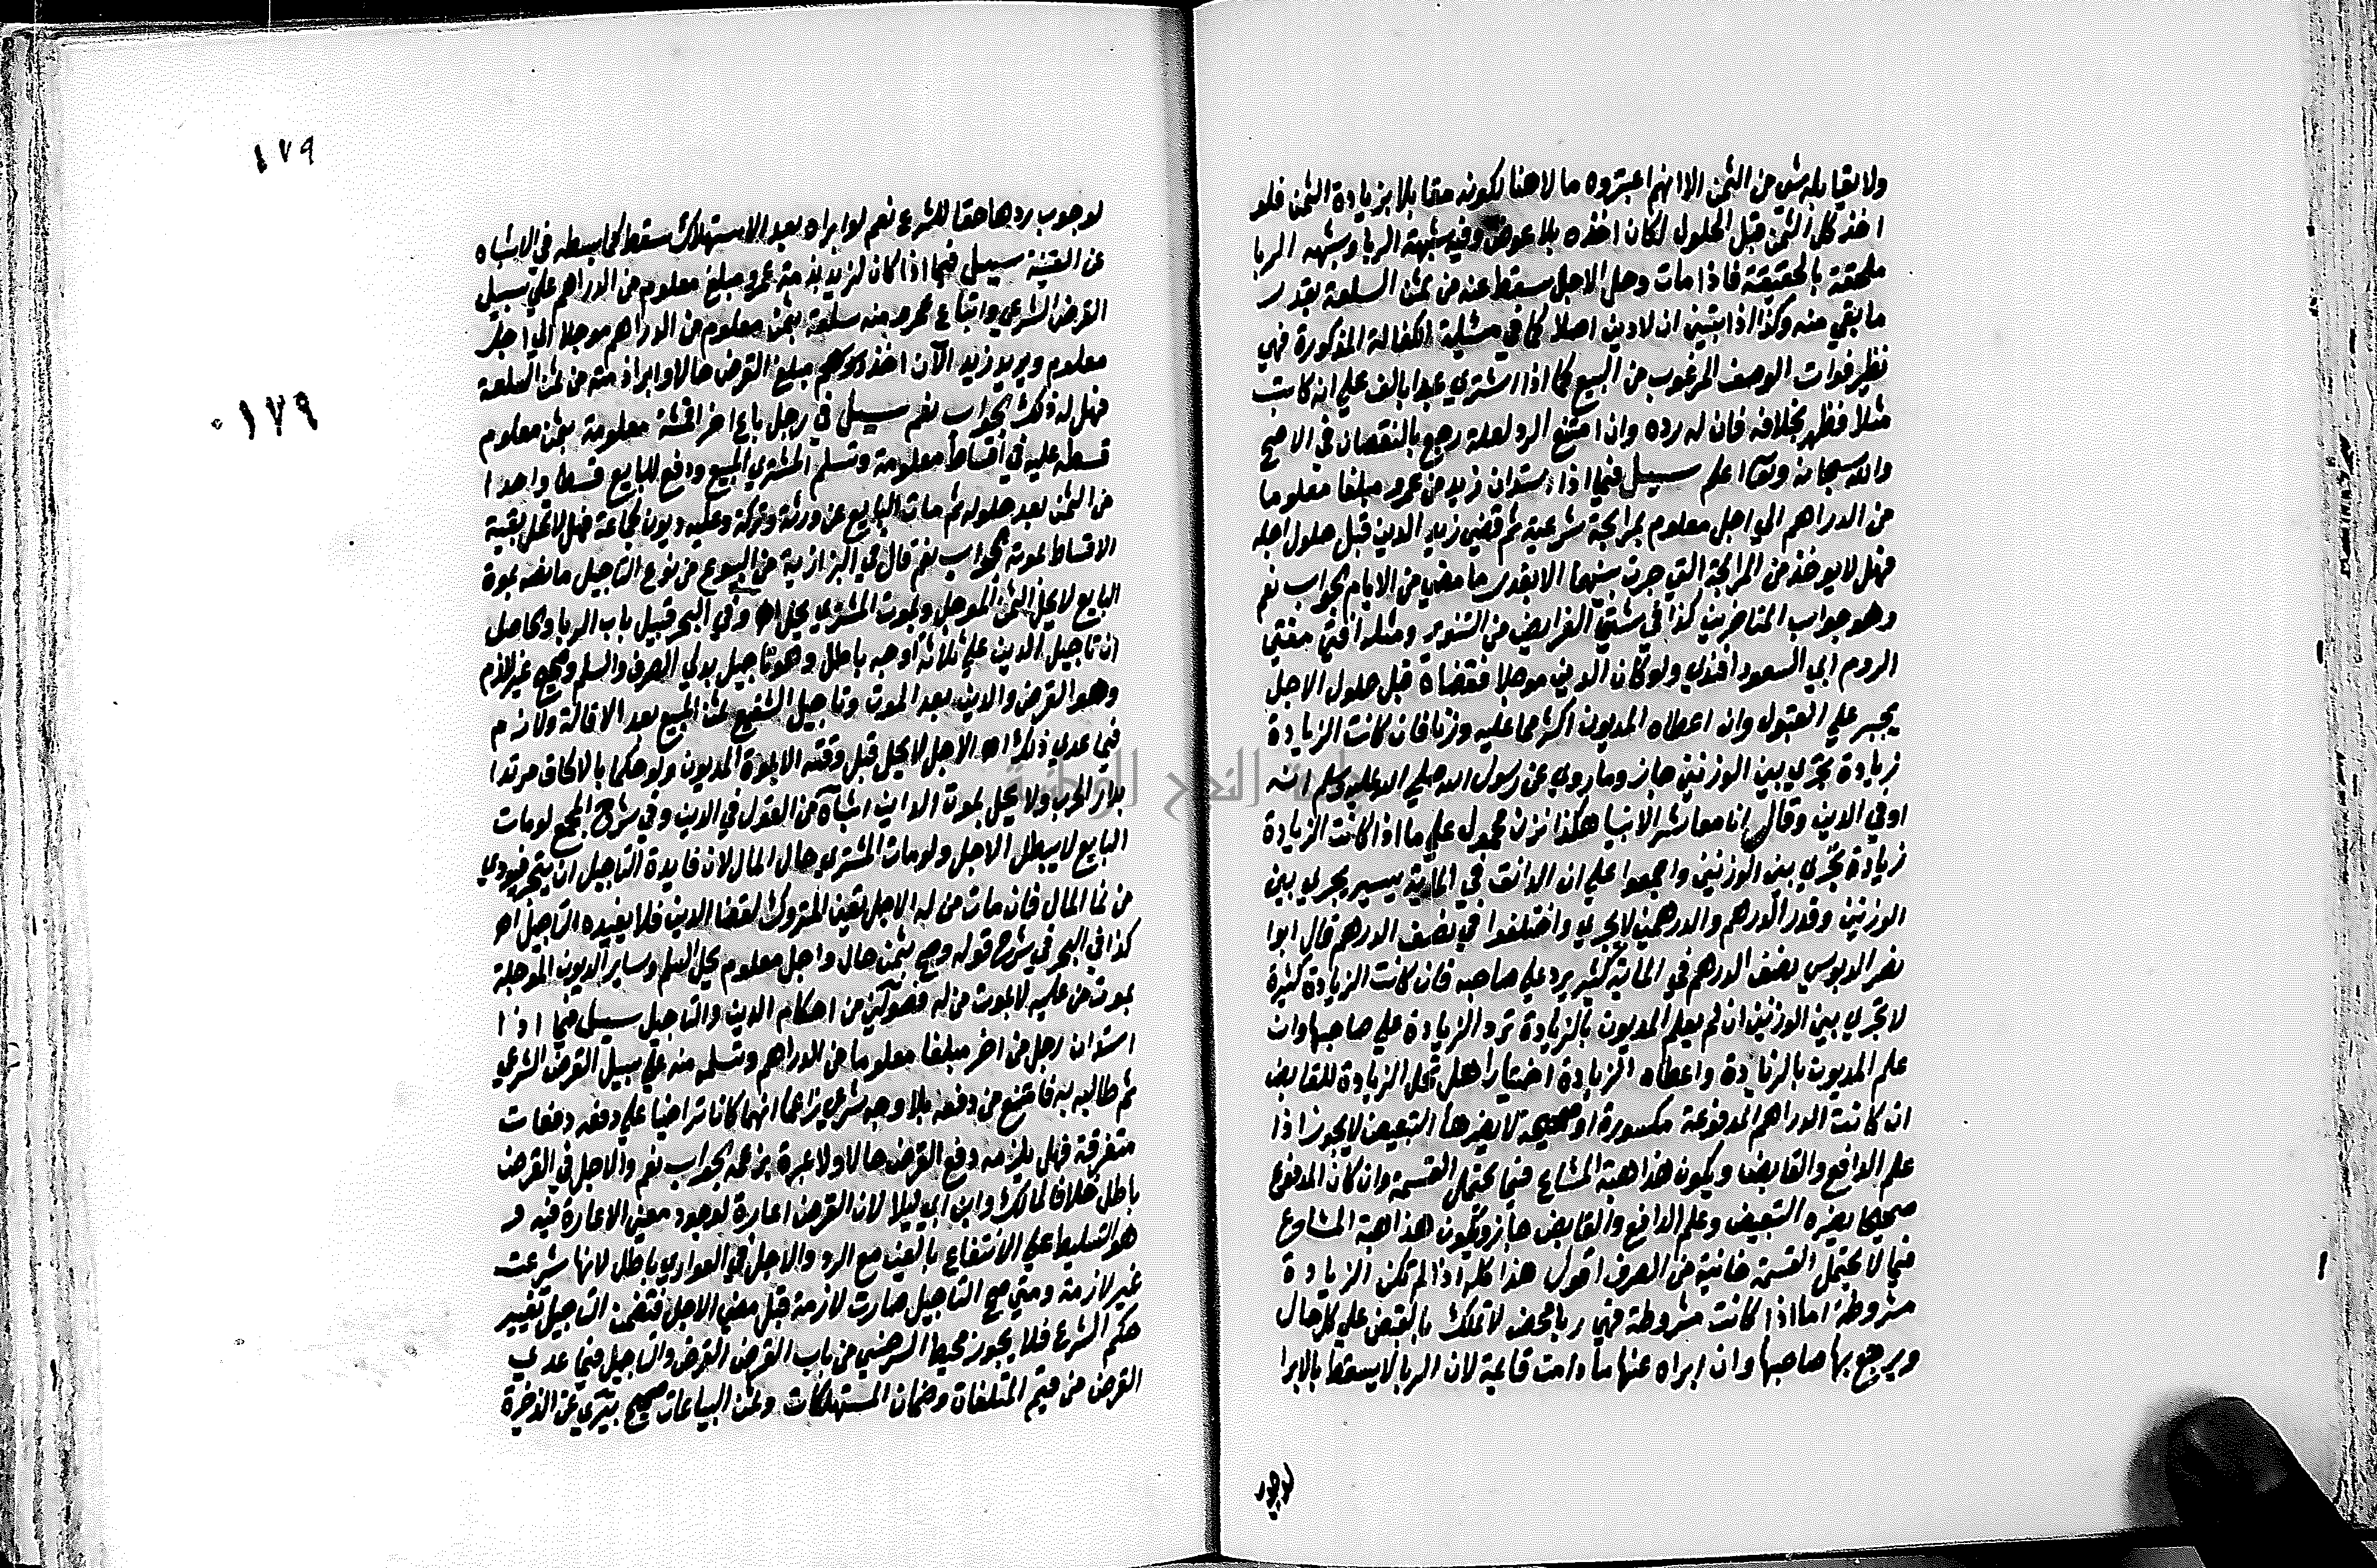 ولا يقابله شي من الثمن الا انهم اعتبروه مالا هنا لكونه مقابلا بزيادة الثمن فلو
اخذ كل الثمن قبل الحلول لكان اخذه بلا عوض وفيه شبهة الربا وشبهه الربا
ملحقة بالحقيقة فاذا مات وحل الاجل سقط عنه من ثمن السلعة بقدر
ما بقي منه وكذا اذا تبين ان لا دين اصلا كما في مسئلة الكفالة المذكورة فهي
نظير فوات الوصف المرغوب من المبيع كما اذا اشتري عبدا بالف علي انه كاتب
مثلا فظهر بخلافه فان له رده وان امتنع الرد لعلة رجع بالنقصان في الاصح
والله سبحانه وتعا اعلم سيل فيما اذا استدان زيد من عمرو مبلغا معلوما
من الدراهم الي اجل معلوم بمرابحة شرعية ثم قضي زيد الدين قبل حلول اجله
فهل لا يوخذ من المرابحة التي جرت بينهما الا بقدر ما مضي من الايام الجواب نعم
وهو جواب المتاخرين كذا في شتي الفرايض من التنوير ومثله افتي مفتي
الروم ابي السعود افندي ولو كان الدين موجلا فقضاه قبل حلول الاجل
يجبر علي القبول وان اعطاه المديون اكثر مما عليه وزنا فان كانت الزيادة
زيادة تجري بين الوزنين جاز وما روي عن رسول الله صلي الله عليه وسلم انه
اوفي الدين وقال انا معاشر الانبيا هكذا نزن محمول علي ما اذا كانت الزيادة
زيادة تجري بين الوزنين واجمعوا علي ان الدانق في الماية يسير يجري بين
الوزنين وقدر الدرهم والدرهمين لا يجري واختلفوا في نصف الدرهم قال ابوا
نصر الدبوسي نصف الدرهم في الماية كثير يرد علي صاحبه فان كانت الزيادة كثيرة
لا تجري بين الوزنين ان لم يعلم المديون بالزيادة ترد الزيادة علي صاحبها وان
علم المديون بالزيادة واعطاه الزيادة اختيارا هل تحل الزيادة للقابض
ان كانت الدراهم المدفوعة مكسورة او صحيحة لا يضرها التبعيض لا يجوز اذا
علم الدافع والقابض ويكون هذا هبة المشاع فيما يحتمل القسمة وان كان المدفوع
صحيحا يضره التبعيض وعلم الدافع والقابض جاز وتكون هذا هبة المشاع
فيما لا يحتمل القسمة خانية من الصرف اقول هذا كله اذا لم تكن الزيادة
مشروطة اما اذا كانت مشروطة فهي ربا محض لا تملك بالقبض علي كل حال
ويرجع بها صاحبها وان ابراه عنها ما دامت قائمة لان الربا لا يسقط بالابرا
لوجوب
١٧٩
١٧٩
لوجوب ردها حقا للشرع نعم لو ابراه بعد الاستهلاك سقط كما بسطه في الاشباه
عن القنية سيل فيما اذا كان لزيد بذمة عمرو مبلغ معلوم من الدراهم علي سبيل
القرض الشرعي وابتاع عمرو منه سلعة بثمن معلوم من الدراهم موجلا الي اجل
معلوم ويريد زيد الآن اخذ مبلغ القرض حالا وابراذمته من ثمن السلعة
فهل له ذلك الجواب نعم سيل في رجل باع اخر اقمشة معلومة بثمن معلوم
قسطه عليه في أقساط معلومة وتسلم المشتري المبيع ودفع للبايع قسطا واحدا
من الثمن بعد حلوله ثم مات البايع عن ورثة وتركة وعليه ديون لجماعة فهل لا تحل بقية
الاقساط بموته الجواب نعم قال في البزازية من البيوع من نوع التاجيل ما نصه بموة
البايع لا يحل الثمن الموجل وبموت المشتري يحل اه وفي البحر قبيل باب الربا والحاصل
ان تاجيل الدين علي ثلاثة أوجه باطل وهو تاجيل بدلي الصرف والسلم وصحيح غير لازم
وهو القرض والدين بعد الموت وتاجيل الشفيع ثمن المبيع بعد الاقالة ولازم
فيما عدي ذلك اه الاجل لا يحل قبل وقته الا بموة المديون ولو حكما بالالحاق مرتدا
بدار الحرب ولا يحل بموت الداين اشباه من القول في الدين وفي شرح المجمع لو مات
البايع لا يبطل الاجل ولو مات المشتري حال المال لان فايدة التاجيل ان يتجر فيودي
من نما المال فان مات من له الاجل تعين المتروك لقضا الدين فلا يفيده التاجيل اه
كذا في البحر في شرح قوله وصح بثمن حال واجل معلوم يحل السلم وساير الديون الموجلة
بموت من عليه لا بموت من له فصولين من احكام الدين والتاجيل سيل فيما اذا
استدان رجل من اخر مبلغا معلوما من الدراهم وتسلمه منه علي سبيل القرض الشرعي
ثم طالبه به فامتنع من دفعه بلا وجه شرعي زاعما انهما كانا تراضيا علي دفعه دفعات
متفرقة فهل يلزمه دفع القرض حالا ولا عبرة بزعمه الجواب نعم والاجل في القرض
باطل خلافا لمالك وابن ابي ليلا لان القرض اعارة لوجود معني الاعارة فيه و
هو التسليط علي الانتفاع بالعين مع الرد والاجل في العواري باطل لانها شرعت
غير لازمة ومتي صح التاجيل صارت لازمة قبل مضي الاجل فتضمن التاجيل تغيير
حكم الشرع فلا يجوز محيط السرخسي من باب القرض القرض والتاجيل فيما عدي
القرض من قيم المتلفات وضمان المستهلكات وثمن البياعات صحيح بيري عن الذخرة